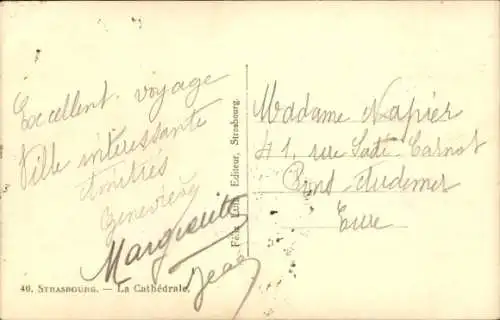 Excellent voyage
Ville intéressante
Amitiés
Geneviève
Marguerite
Jean
40. STRASBOURG. — La Cathédrale.
Félix Luib, Editeur, Strasbourg.
Madame Napier
41, rue Sadi-Carnot
Pont-Audemer
Eure